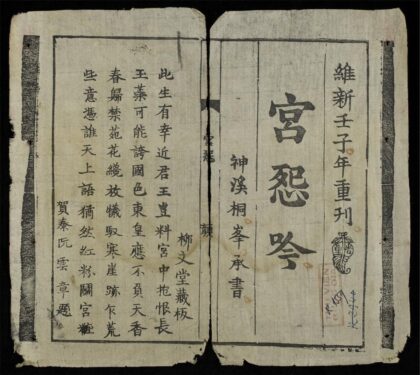 維新壬子年重刊
宮怨吟
神溪桐峯承書
宮怨
題
柳文堂藏板
此生有幸近君王豈料宮中抱恨長
玉藥可能誇國色東皇應不負天香
春歸禁苑花纔放犢馭寒崖跡乍荒
些意憑誰天上語猶然紅粉宮粧
賀泰阮雲章題